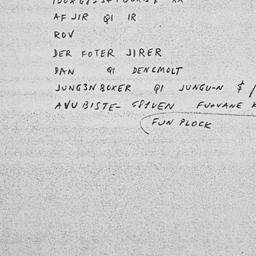 AF JIR QI IR
ROV
DER FOTER JIRER
DAN QI DENCMOLT
JUNG3N BOXER QI JUNGU-N $
AVU BISTE-
FUN PLOCK